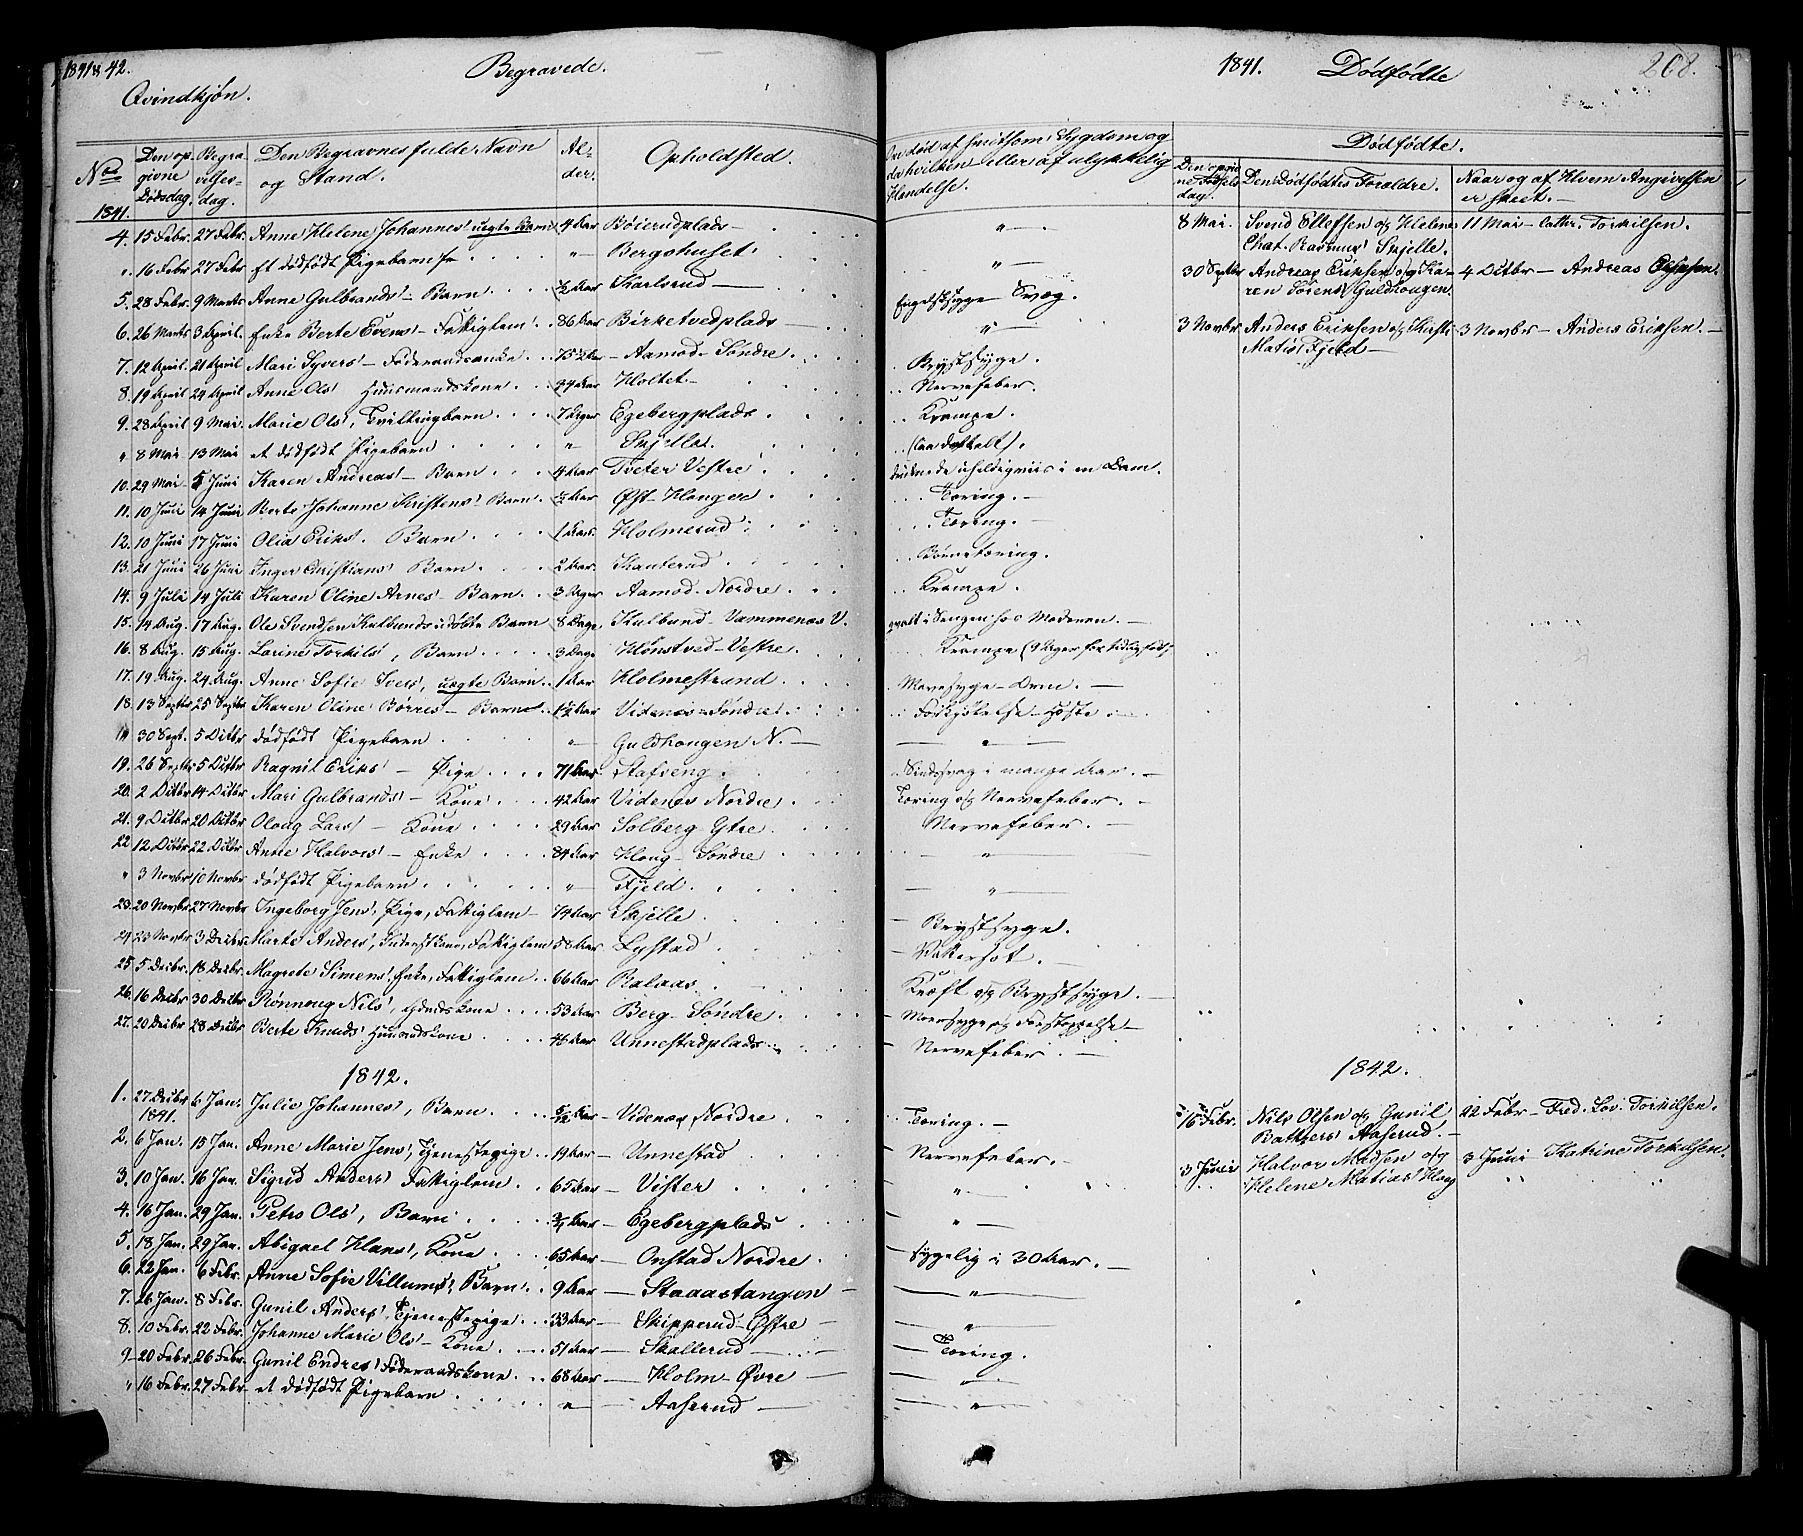 1841 & 42. Begravede.
Qvindkjøn.
No | Den opgivne Dødsdag. | Begravelsesdag. | Den Begravnes fulde Navn og Stand. | Alder. | Opholdsted.
1841.
4. 15 Febr. 27 Febr. Anne Helene Johannes' uægte Barn 4 Aar Bøierudplads
" 16 Febr 27 Febr Et dødfødt Pigebarn " Bergshuset
5. 28 Febr. 9 Marts Anne Gulbrands' Barn ½ Aar Karlsrud
6. 26 Marts 3 April. Enke Berte Evens' Fattiglem 86 Aar Birketvedplads
7. 12 April. 21 April Mari Syvers' Føderaadsenke 75½ Aar Aamod Søndre.
8. 19 April 24 April Anne Ols' Huusmandskone 44 Aar Holtet
9. 28 April 9 Mai. Marie Ols', Tvillingbarn 7 Uger Egebergplads
" 8 Mai 13 Mai et dødfødt Pigebarn " Skjelle.
10. 29 Mai 5 Juni Karen Andreas' Barn 4 Aar Tveter Vestre
11. 10 Juni 14 Juni Berte Johanne Kristens' Barn ½ Aar Øst-Hougen
12. 10 Juni 17 Juni Olia Eriks'. Barn 1 Aar. Holmerud
13. 21 Juni 26 Juni Inger Christians' Barn 2 Aar. Kanterud
14. 9 Juli 14 Juli Karen Oline Arnes' Barn 3 Uger Aamod Nordre
15. 14 Aug. 17 Aug. Ole Svendsen Kulbunds udøbte Barn 8 Dage Kulbund-Vammenæs V.
16. 8 Aug. 15 Aug. Larine Torkils', Barn 3 Dage Hønstved-Vestre
17. 19 Aug. 24 Aug. Anne Sofie Ivers', uægte Barn 1 Aar Holmestrand
18. 13 Septbr 25 Septbr Karen Oline Borres' Barn 1½ Aar Videnes-Søndre
" 30 Sept. 5 Octbr dødfødt Pigebarn " Guldhougen N.
19. 26 Septbr 5 Octbr Ragnil Eriks' Pige 71 Aar Stafseng
20. 2 Octbr 14 Octbr Mari Gulbrands' Kone 42 Aar Videnes Nordre
21. 9 Octbr 20 Octbr Oloug Lars' Kone 29 Aar Solberg Ytre
22 12 Octbr 22 Octbr Anne Halvors' Enke 84 Aar Houg Søndre
" 3 Novbr 10 Novbr dødfødt Pigebarn " Fjeld
23. 20 Novbr 27 Novbr Ingeborg Jens', Pige, Fattiglem 74 Aar Skjelle
24 23 Novbr 3 Decbr Marte Anders', Fattiglem 58 Aar Lystad
25. 5 Decbr. 18 Decbr. Magrete Simens', Enke, Fattiglem 66 Aar Ralaas
26. 16 Decbr 30 Decbr Rønnoug Nils', Gaardskone 53 Aar Berg Søndre
27. 20 Decbr 28 Decbr Berte Knuds' Huusmandskone 46 Aar Unnestadplads
1842.
1. 27 Decbr 1841. 6 Jan. Julie Johannes', Barn Aar Videnes Nordre
2. 6 Jan. 15 Jan. Anne Marie Jens', Tjenestepige 19 Aar Unnestad
3. 10 Jan. 16 Jan. Sigrid Anders' Fattiglem 65 Aar Vister
4. 16 Jan. 29 Jan. Petra Ols', Barn Aar Egebergplads
5. 18 Jan. 29 Jan. Abigael Hans', Kone 65 Aar Onstad Nordre
6. 22 Jan. 6 Febr. Anne Sofie Villums', Barn 9 Aar Staaastangen
7. 26 Jan. 8 Febr. Gunil Anders', Tjenestepige 33 Aar Skipperud-Østre
8. 10 Febr. 22 Febr. Johanne Marie Ols' Kone 51 Aar Skallerud
9 20 Febr. 26 Febr. Gunil Endres' Føderaadskone 68 Aar Holm-Øvre
" 16 Febr. 27 Febr et dødfødt Pigebarn " Aaserud
1841. Dødfødte 208.
Om død af smitsom Sygdom og da hvilken eller af ulykkelig Hændelse.
Dødfødte.
Den opgivne Fødselsdag. | Den Dødfødtes Forældre. | Naar og af Hvem Angivelsen er skeet.
8 Mai. Svend Ellefsen og Helene Chat. Rasmus' Skjelle. 11 Mai Cathr. Torkilsen.
30 Septbr Andreas Eriksen og Karen Sørens' Guldhougen 4 Octbr Andreas Eriksen.
3 Novbr Anders Eriksen og Kirsti Matis' Fjeld 3 Novbr Anders Eriksen.
"
"
Engelsksyge Svæg.
"
Brystsyge.
Nervefeber.
Krampe.
druknede uheldigviis i en Dam.
Tæring.
Tæring.
Børnetæring.
Krampe.
qvalt i Sengen hos Moderen.
Krampe (9 Uger for tidlig født,
Mavesyge-Orm.
Forkjølelse-Hoste
"
Sindssvag i mange Aar.
Tæring og Nervefeber.
Nervefeber.
"
"
Brystsyge.
Vattersot.
Kræft og Brystsyge.
Mavesyge og Forstoppelse
Nervefeber.
1842.
Tæring.
Nervefeber.
"
"
Sygelig i 30 Aar.
"
"
Tæring.
"
"
16 Febr. Nils Olsen og Gunil Aaserud. 22 Febr Fred. Lov. Torkilsen.
3 Juni Halvor Madsen og Helene Matias' Houg 3 Juni Katrine Torkilsen.